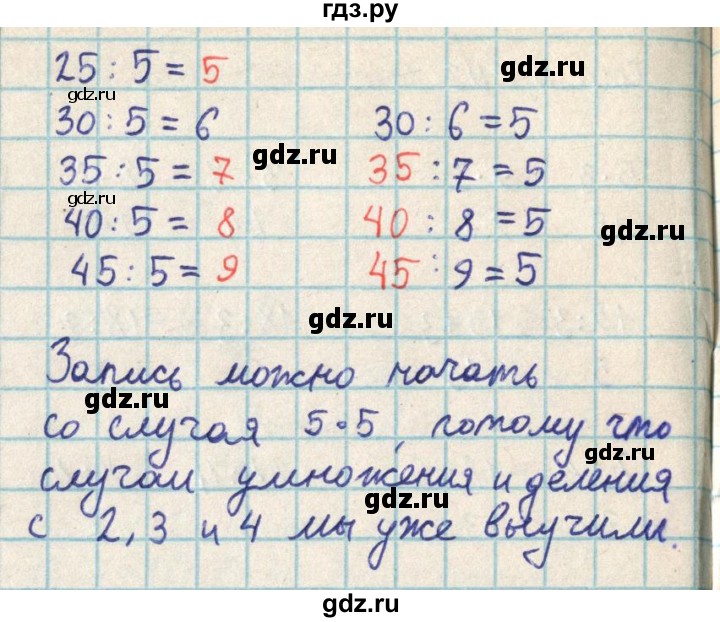 гдз.ру
25 : 5 = 5
gdz.ru
gdz.ru
30 : 5 = 6 30 : 6 = 5
gdz.ru
35 : 5 = 7 35 : 7 = 5
40 : 5 = 8 40 : 8 = 5
gdz.ru
gdz.ru
45 : 5 = 9 45 : 9 = 5
gdz.ru
Запись можно начать
gdz.ru
со случая 5·5, потому что
gdz.ru
случаи умножения и деления
gdz.ru
с 2, 3 и 4 мы уже выучили.
gdz.ru